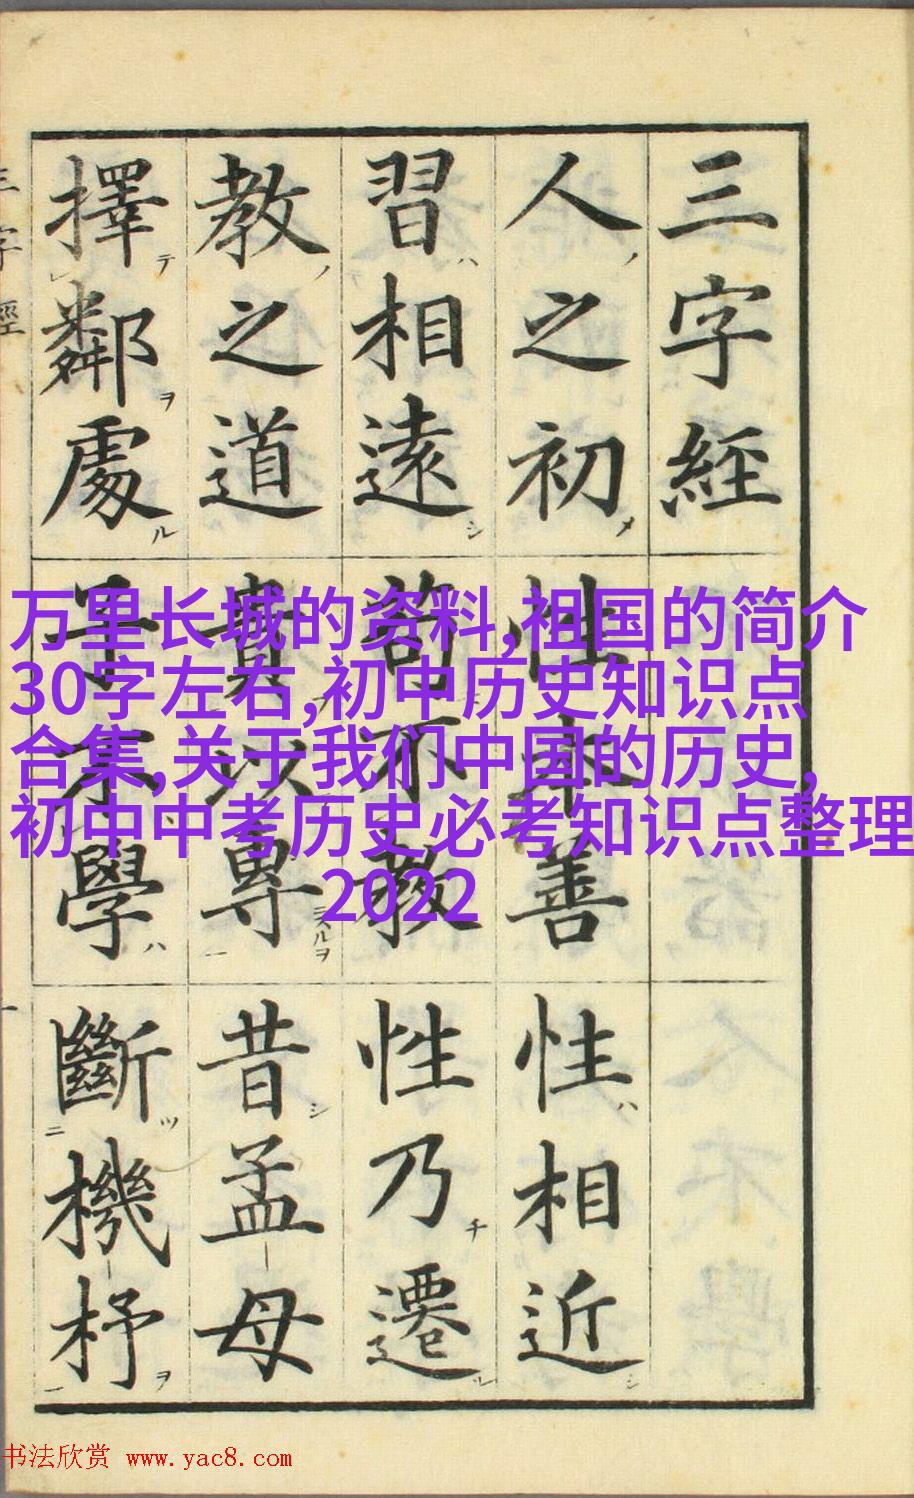 三字經
人之初 性本善 性相近
習相遠 苟不教 性乃遷
教之道 貴以專 昔孟母
擇鄰處 子不學 斷機杼
三字經
万里长城的资料,祖国的简介
30字左右,初中历史知识点
合集,关于我们中国的历史,
初中中考历史必考知识点整理
2022
书法欣赏 www.yac8.com